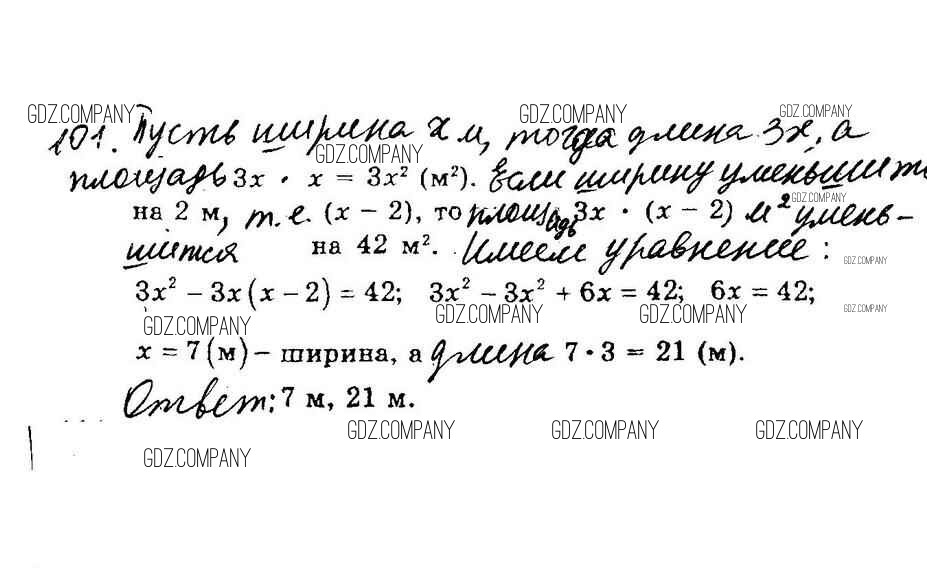 GDZ.COMPANY GDZ.COMPANY GDZ.COMPANY
101. Пусть ширина x м, тогда длина 3x, а
GDZ.COMPANY
площадь 3x · x = 3x² (м²). Если ширину уменьшить
GDZ.COMPANY
на 2 м, т.е. (x − 2), то площадь 3x · (x − 2) м² умень-
шится на 42 м². Имеем уравнение:
GDZ.COMPANY
3x² − 3x(x − 2) = 42; 3x² − 3x² + 6x = 42; 6x = 42;
GDZ.COMPANY GDZ.COMPANY GDZ.COMPANY GDZ.COMPANY
x = 7(м) − ширина, а длина 7 · 3 = 21 (м).
Ответ: 7 м, 21 м.
GDZ.COMPANY GDZ.COMPANY GDZ.COMPANY
GDZ.COMPANY